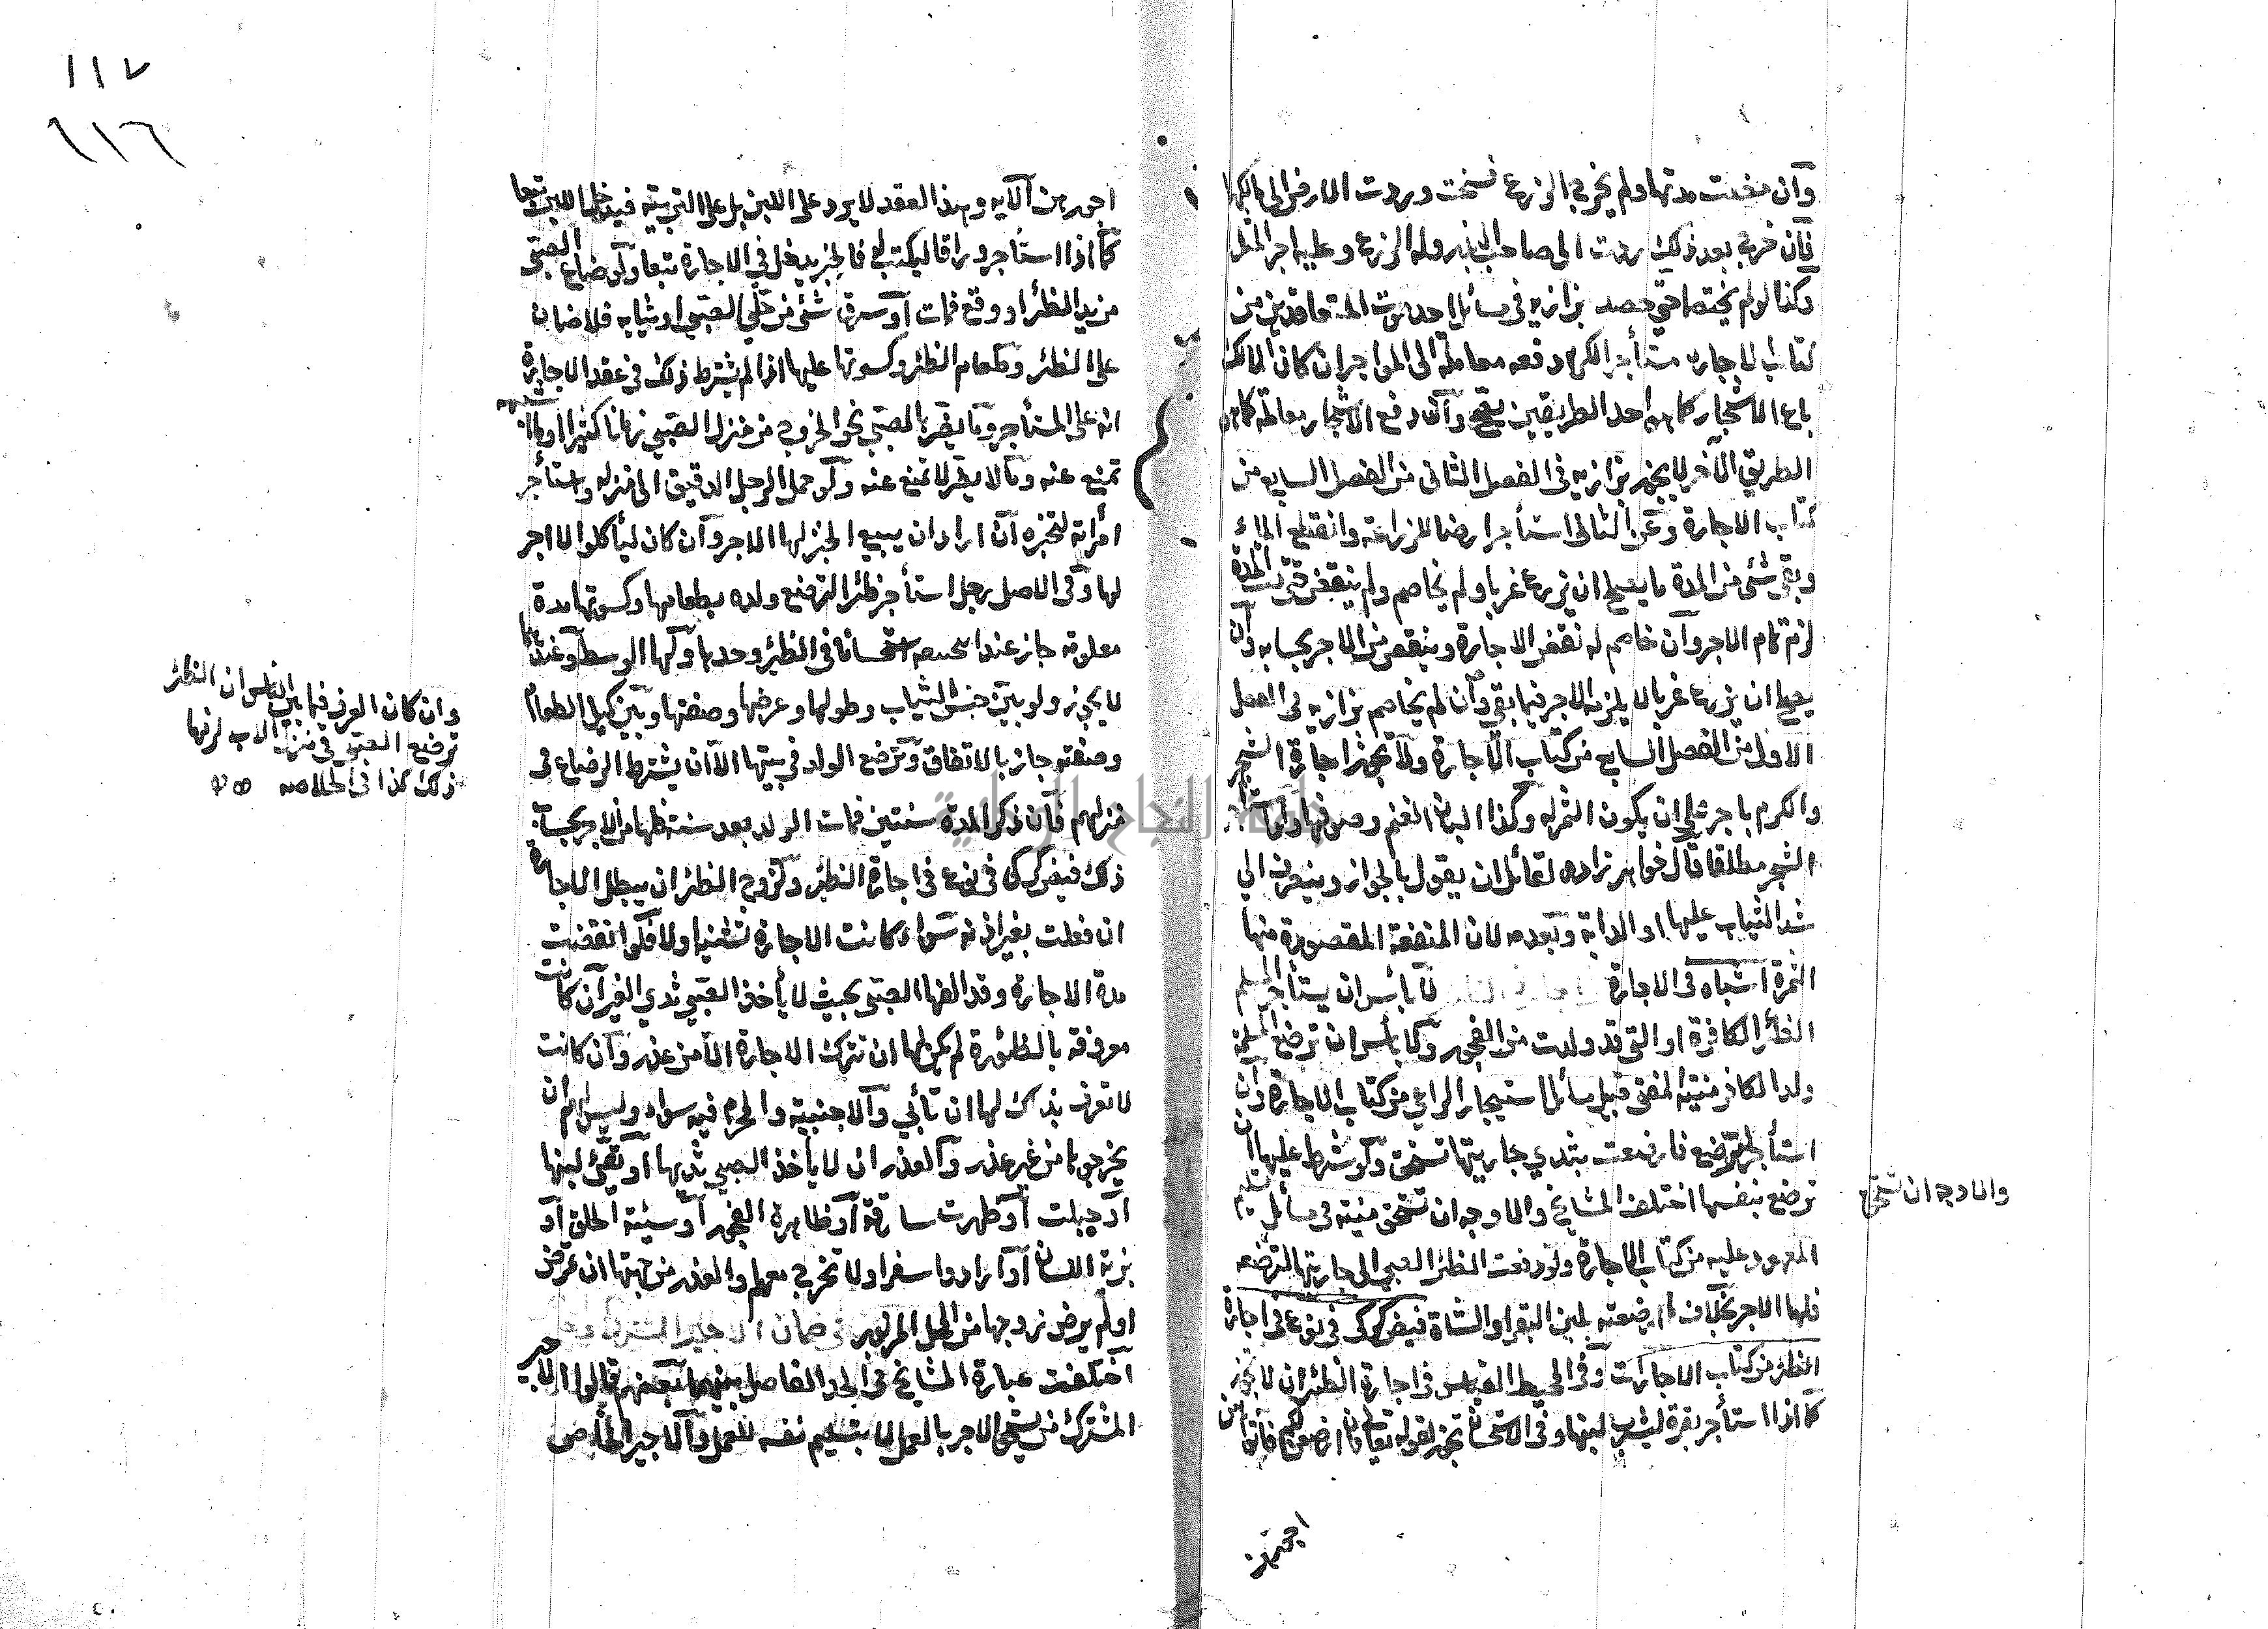 وان مضت مدتها ولم يخرج الزرع فسخت وردت الارض الى مالكها
فان خرج بعد ذلك ردت الى صاحب البذر وله الزرع وعليه اجر المثل
وكذا لو لم يختصما حتى حصد بزازيه في مسائل احد موت المتعاقدين من
كتاب الاجاره مستأجر الكرم دفعه معاملة الى المؤاجر ان كان المالك
باع الاشجار كما هو احد الطريقين يصح وان دفع الاشجار معاملة كما هو
الطريق الآخر لا يجوز بزازيه في الفصل الثاني من الفصل السابع من
كتاب الاجارة وعن الثاني استأجر ارضا للزراعة وانقطع الماء
وبقي شئ من المدة ما يصلح ان يزرع غربا ولم يخاصم ولم ينقض حتى تمت المدة
لزمه تمام الاجر وان خاصم له نقض الاجارة وينقص من الاجر بحسابه وان
يصلح ان يزرع غربا لا يلزمه الاجر فيما بقي وان لم يخاصم بزازيه في الفصل
الاول من الفصل السابع من كتاب الاجارة ولا يجوز اجارة الشجر
والكرم باجر على ان يكون الثمر له وكذا البان الغنم وصوفها ولو آجر
الشجر مطلقا قال خواهر زاده لقائل ان يقول بالجواز وينصرف الى
شد الثياب عليها او الدابة وبعدمه لان المنفعة المقصودة منها
الثمرة اشباه في الاجارة لا بأس ان يستأجر المسلم
الظئر الكافرة او التي قد ولدت من الفجور ولا بأس ان ترضع المسلمة
ولد الكافر منية المفتي قبيل مسائل استيجار الراعي من كتاب الاجارة وان
استأجر لترضع فارضعت بثدي جاريتها تستحق ولو شرط عليها ان
ترضع بنفسها اختلف المشايخ والاوجه ان تستحق منيته في مسائل تسليم
المعقود عليه من كتاب الاجارة ولو دفعت الظئر الصبي الى جاريتها لترضعه
فلها الاجر بخلاف ما ارضعته بلبن البقر او الشاة فيض كركي في نوع في اجارة
الظئر من كتاب الاجارات وفي المحيط القياس في اجارة الظئر ان لا تجوز
كما اذا استأجر بقرة ليشرب لبنها وفي الاستحسان تجوز لقوله تعالى فان ارضعن لكم فآتوهن
اجورهن
والاوجه ان تستحق
اجورهن الآيه وهذا العقد لا يرد على اللبن بل على التربية فيدخل اللبن تبعا
كما اذا استأجر وراقا ليكتب له فالحبر يدخل في الاجارة تبعا ولو ضاع الصبي
من يد الظئر او وقع فمات او سرق شئ من حلي الصبي او ثيابه فلا ضمان
على الظئر وطعام الظئر وكسوتها عليها اذا لم يشترط ذلك في عقد الاجارة
انه على المستأجر وما يضر بالصبي نحو الخروج من منزل الصبي زمانا كثيرا
تمنع عنه وما لا يضر لا تمنع عنه ولو حمل الرجل الدقيق الى منزله واستأجر
امرأته لتخبزه ان اراد ان يبيع الخبز لها الاجر وان كان ليأكلوا لا اجر
لها وفي الاصل رجل استأجر ظئرا لترضع ولده بطعامها وكسوتها مدة
معلومة جاز عند ابي حنيفه استحسانا في الظئر وحدها ولها الوسط وعندهما
لا يجوز ولو بين جنس الثياب وطولها وعرضها وصفتها وبين كيل الطعام
وصفته جاز بالاتفاق وترضع الولد في بيتها الا ان يشترط الرضاع في
منزلهم فان ذكر المدة سنتين فمات الولد بعد سنة فلها من الاجر بحساب
ذلك فيض كركي في نوع في اجارة الظئر ولزوج الظئر ان يبطل الاجارة
ان فعلت بغير اذنه سواء كانت الاجارة تشينه اولا فلو انقضت
مدة الاجارة وقد الفها الصبي بحيث لا يأخذ الصبي ثدي الغير ان كانت
معروفة بالظئورة لم يكن لها ان تترك الاجارة الا من عذر وان كانت
لا تعرف بذلك لها ان تأبى والاجنبية والمحرم فيه سواء وليس لهم ان
يخرجوها من غير عذر والعذر ان لا يأخذ الصبي ثديها او تقئ لبنها
او حبلت او ظهرت سارقة او ظاهرة الفجور او سيئة الخلق او
بذية اللسان او ارادوا سفرا ولا تخرج معهم والعذر من جهتها ان تمرض
او لم يرض زوجها من المحل المزبور في ضمان الاجير المشترك
اختلفت عبارة المشايخ في الحد الفاصل بينهما بعضهم قالوا الاجير
المشترك من يستحق الاجر بالعمل لا بتسليم نفسه للعمل والاجير الخاص
وان كان العرف فيما بين الناس ان الظئر
ترضع الصبي في منزل الاب لزمها
ذلك كذا في الخلاصه
١١٧